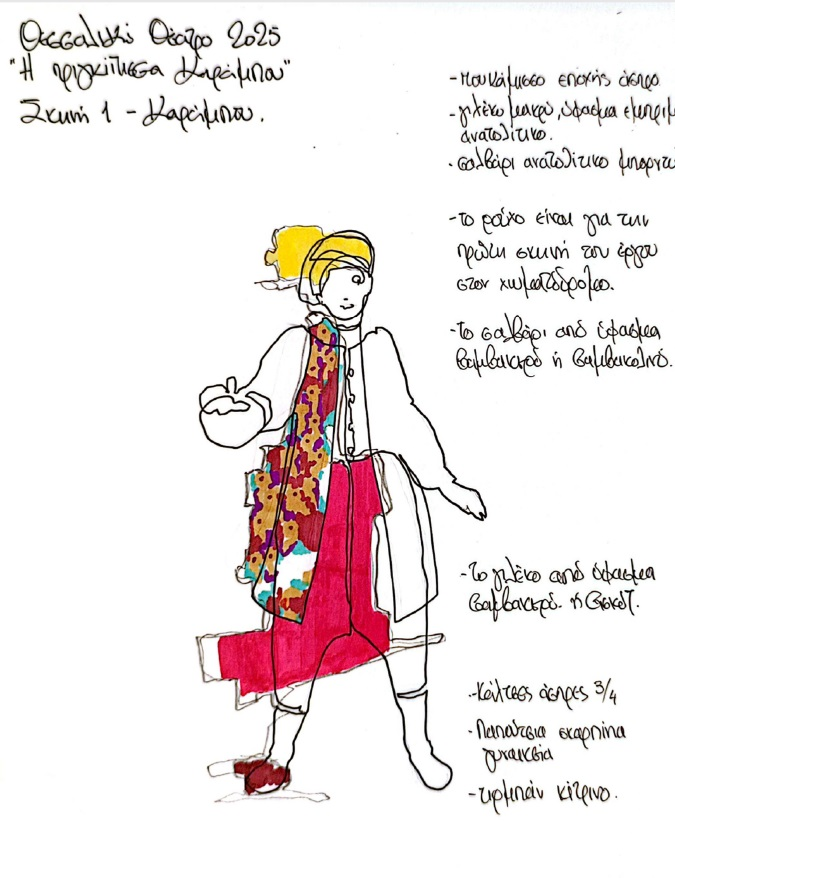 Θεσσαλικό Θέατρο 2025
"Η πριγκίπισσα Καράμπου"
Σκηνή 1 - Καράμπου.
- πουκάμισο εποχής άσπρο
- γιλέκο μακρύ, ύφασμα εμπριμ
ανατολίτικο.
- σαλβάρι ανατολίτικο μπορντώ
- το ρούχο είναι για την
πρώτη σκηνή του έργου
στον χωματόδρομο.
- το σαλβάρι από ύφασμα
βαμβακερό ή βαμβακολινό.
- το γιλέκο από ύφασμα
βαμβακερό ή
- Κάλτσες άσπρες 3/4
- Παπούτσια σκαρπίνια
γυναικεία
- τιρμπάν κίτρινο.